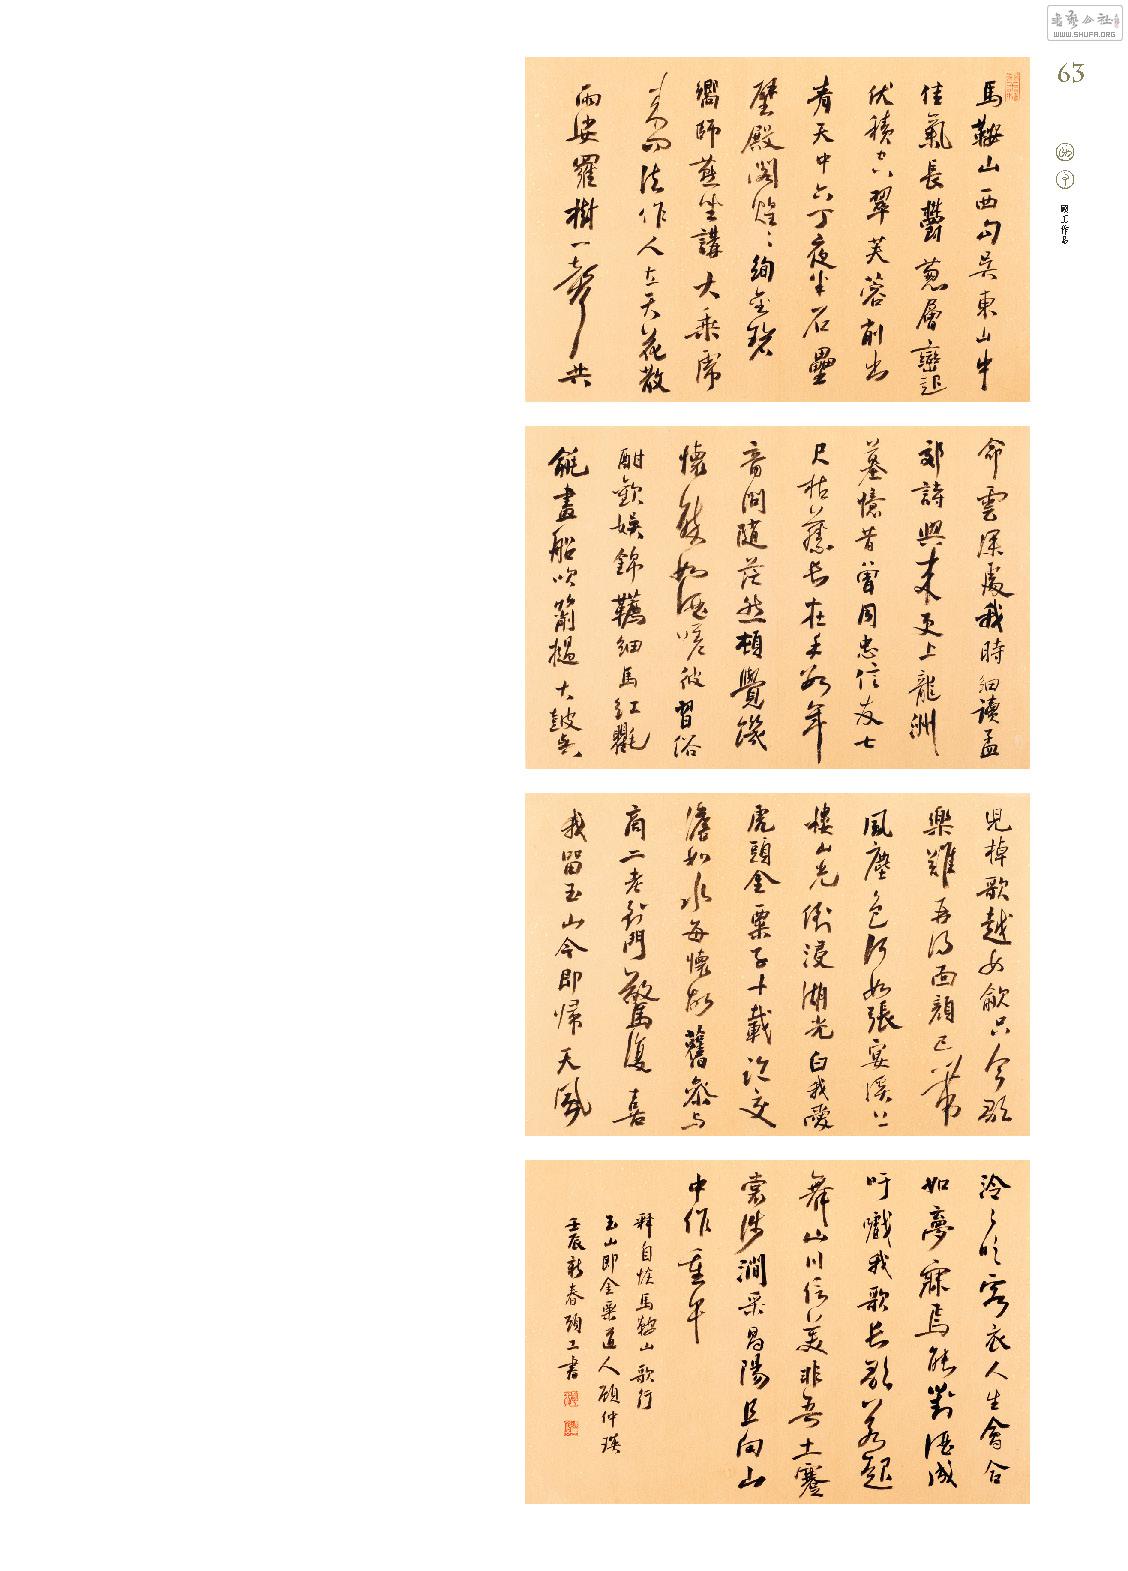 书艺公社
WWW.SHUFA.ORG
63
顾工作品
馬鞍山西勾吳東山中
佳氣長鬱蔥層巒起
伏積空翠芙蓉削出
青天中六丁夜半石壘
壁殿閣煌〻絢金碧
嚮師燕坐講大乘虎
來聽法作人立天花散
雨娑羅樹一聲共
命雲深處我時細讀孟
郊詩興來更上龍洲
墓憶昔曾同忠信友七
尺枯藤長在手數年
音問隨茫然頓覺饑
懷如酒嗟彼習俗
酣歡娛錦韉細馬紅氍
毹畫船吹簫撾大鼓吳
兒棹歌越女歈只今歌
樂難再得面顏已帶
風塵色何如張宴溪上
樓山光倒浸湖光白我愛
虎頭金粟子十載論交
澹如水每懷故舊參與
商二老到門驚復喜
我留玉山今即歸天風
泠〻吹客衣人生會合
如夢寐焉能對酒成
吁戲我歌長歌君起
舞山川信美非吾土蹇
裳涉澗采昌陽且向山
中作重午
釋自恢馬鞍山歌行
玉山即金粟道人顧仲瑛
壬辰新春顧工書